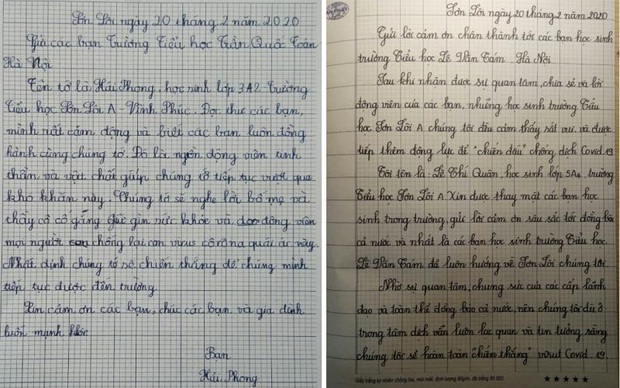 Sơn Lôi ngày 20 tháng 2 năm 2020
Gửi các bạn Trường Tiểu học Trần Quốc Toản
Hà Nội
Tên tớ là Hải Phong, học sinh lớp 3A2 Trường
Tiểu học Sơn Lôi A - Vĩnh Phúc. Đọc thư các bạn,
mình rất cảm động và biết các bạn luôn đồng
hành cùng chúng tớ. Đó là nguồn động viên tinh
thần và vật chất giúp chúng tớ tiếp tục vượt qua
khó khăn này. Chúng tớ sẽ nghe lời bố mẹ và
thầy cô cố gắng giữ gìn sức khỏe và động viên
mọi người chống lại con virus côrôna quái ác này.
Nhất định chúng tớ sẽ chiến thắng để chúng mình
tiếp tục được đến trường.
Xin cảm ơn các bạn, chúc các bạn và gia đình
luôn mạnh khỏe
Bạn
Hải Phong
Sơn Lôi ngày 20 tháng 2 năm 2020
Gửi lời cảm ơn chân thành tới các bạn học sinh
trường Tiểu học Lê Văn Tám Hà Nội
Sau khi nhận được sự quan tâm, chia sẻ và lời
động viên của các bạn, những học sinh trường Tiểu
học Sơn Lôi A chúng tôi đều cảm thấy rất vui và được
tiếp thêm động lực để "chiến đấu" chống dịch Covid 19
Tôi tên là: Lê Chí Quân, học sinh lớp 5A2 trường
Tiểu học Sơn Lôi A Xin được thay mặt các bạn học
sinh trong trường, gửi lời cảm ơn sâu sắc tới đồng bào
cả nước và nhất là các bạn học sinh trường Tiểu học
Lê Văn Tám đã luôn hướng về Sơn Lôi chúng tôi
Nhờ sự quan tâm, chung sức của các cấp lãnh
đạo và toàn thể đồng bào cả nước, nên chúng tôi dù ở
trong tâm dịch vẫn luôn lạc quan và tin tưởng rằng
chúng tôi sẽ hoàn toàn "chiến thắng" virut Covid 19.